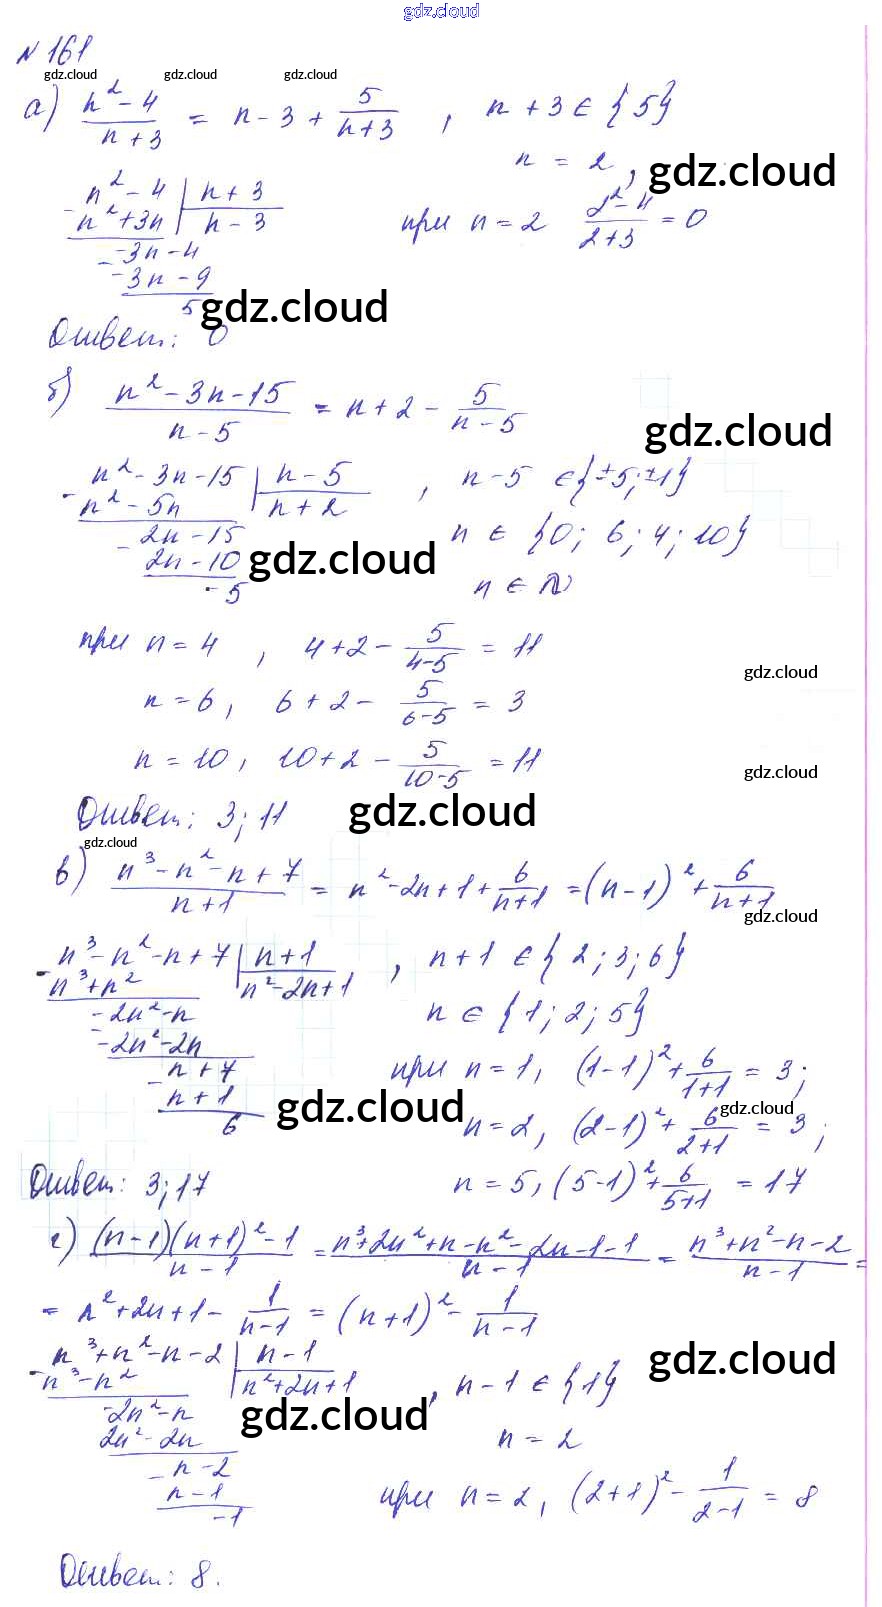 gdz.cloud
№ 161
gdz.cloud gdz.cloud gdz.cloud
а) (n² - 4)/(n + 3) = n - 3 + 5/(n+3) , n + 3 ∈ {5}
n = 2, gdz.cloud
n² - 4 | n + 3
- n² + 3n | n - 3 при n = 2 (2² - 4)/(2 + 3) = 0
-3n - 4
- -3n - 9
5 gdz.cloud
Ответ: 0
б) (n² - 3n - 15)/(n - 5) = n + 2 - 5/(n - 5)
gdz.cloud
n² - 3n - 15 | n - 5 , n - 5 ∈ {±5; ±1}
- n² - 5n | n + 2
2n - 15 n ∈ {0; 6; 4; 10}
- 2n - 10 gdz.cloud
-5 n ∈ N
при n = 4 , 4 + 2 - 5/(4-5) = 11
gdz.cloud
n = 6, 6 + 2 - 5/(6-5) = 3
n = 10, 10 + 2 - 5/(10-5) = 11
gdz.cloud
Ответ: 3; 11 gdz.cloud
gdz.cloud
в) (n³ - n² - n + 7)/(n + 1) = n² - 2n + 1 + 6/(n+1) = (n - 1)² + 6/(n+1)
gdz.cloud
n³ - n² - n + 7 | n + 1 , n + 1 ∈ {2; 3; 6}
- n³ + n² | n² - 2n + 1
-2n² - n n ∈ {1; 2; 5}
- -2n² - 2n
n + 7 при n = 1, (1-1)² + 6/(1+1) = 3;
- n + 1 gdz.cloud gdz.cloud
6 n = 2, (2-1)² + 6/(2+1) = 3;
Ответ: 3; 17 n = 5, (5-1)² + 6/(5+1) = 17
г) ((n-1)(n+1)² - 1)/(n - 1) = (n³ + 2n² + n - n² - 2n - 1 - 1)/(n - 1) = (n³ + n² - n - 2)/(n - 1) =
= n² + 2n + 1 - 1/(n-1) = (n+1)² - 1/(n-1)
n³ + n² - n - 2 | n - 1 gdz.cloud
- n³ - n² | n² + 2n + 1 , n - 1 ∈ {1}
-2n² - n gdz.cloud
2n² - 2n n = 2
n - 2
- n - 1 при n = 2, (2+1)² - 1/(2-1) = 8
-1
Ответ: 8.